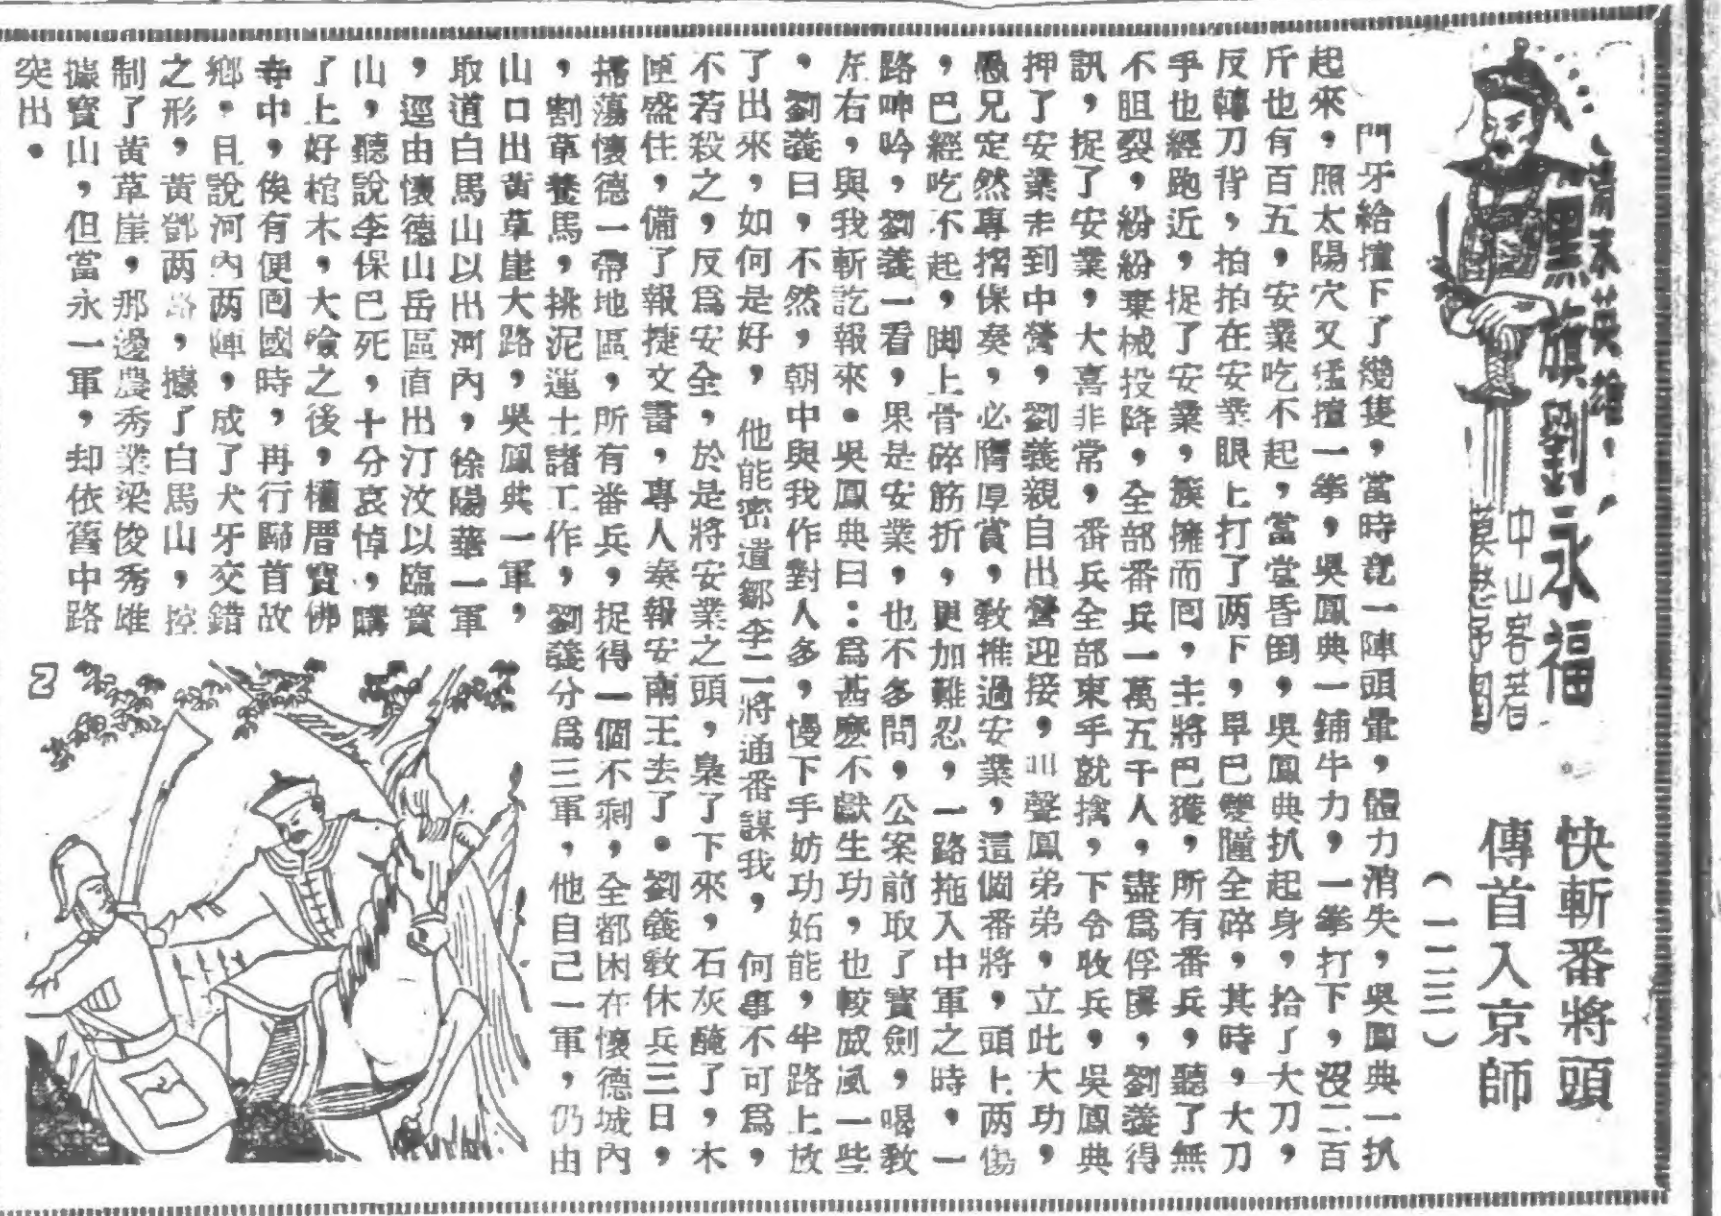 清末英雄
黑旗劉永福
中山客著
快斬番將頭
傳首入京師
(一二三)
門牙給擂下了幾隻,當時竟一陣頭暈,體力消失,吳鳳典一扒
起來,照太陽穴又猛擂一拳,吳鳳典一鋪牛力,一拳打下,沒二百
斤也有百五,安業吃不起,當堂昏倒,吳鳳典扒起身,拾了大刀,
反轉刀背,拍拍在安業眼上打了两下,早巳雙瞳全碎,其時,大刀
手也經跑近,捉了安業,簇擁而囘,主將巴獲,所有番兵,聽了無
不胆裂,紛紛棄械投降,全部番兵一萬五千人,盡爲俘虜,劉義得
訊,捉了安業,大喜非常,番兵全部束手就擒,下令收兵,吳鳳典
押了安業走到中營,劉義親自出營迎接,叫聲鳳弟弟,立此大功,
愚兄定然專摺保奏,必膺厚賞,敎推過安業,這個番將,頭上两傷
,巴經吃不起,脚上骨碎筋折,更加難忍,一路拖入中軍之時,一
路呻吟,劉義一看,果是安業,也不多問,公案前取了寳劍,喝敎
左右,與我斬訖報來。吳鳳典曰:爲甚麽不獻生功,也較威風一些
,劉義曰,不然,朝中與我作對人多,慢下手妨功妬能,半路上放
了出來,如何是好,他能密遣鄒李二將通番謀我,何事不可爲,
不若殺之,反爲安全,於是將安業之頭,梟了下來,石灰醃了,木
匣盛住,備了報捷文書,專人奏報安南王去了。劉義敎休兵三日,
掃蕩懷德一帶地區,所有番兵,捉得一個不剩,全都困在懷德城內
,割草養馬,挑泥運土諸工作,劉義分爲三軍,他自己一軍,仍由
山口出黃草崖大路,吳鳳典一軍,
取道白馬山以出河內,徐陽華一軍
,逕由懷德山岳區直出汀汶以臨寳
山,聽說李保巴死,十分哀悼,購
了上好棺木,大殮之後,權厝寳佛
寺中,俟有便囘國時,再行歸首故
鄉。且說河內两陣,成了犬牙交錯
之形,黃鄧两路,據了白馬山,控
制了黃草崖,那邊農秀業梁俊秀雄
據寳山,但當永一軍,却依舊中路
突出。
2